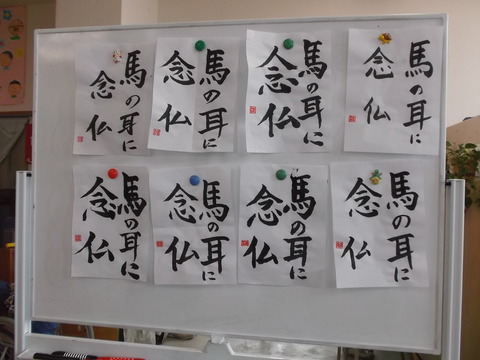 馬の耳に
念仏
馬の耳に
念仏
馬の耳に
念仏
馬の耳に
念仏
馬の耳に
念仏
馬の耳に
念仏
馬の耳に
念仏
馬の耳に
念仏